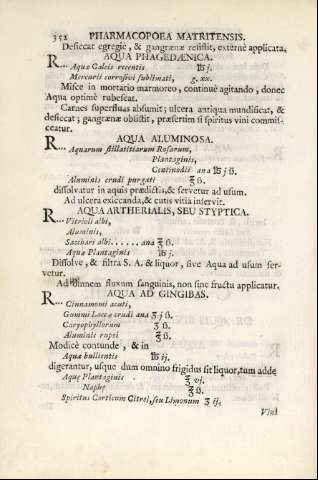 352 PHARMACOPOEA MATRITENSIS.
Desiccat egregiè, & gangrænæ resistit, externè applicata,
AQUA PHAGEDÆNICA.
R.... Aquæ Calcis recentis ℔ j.
Mercurii corrosivi sublimati, g. xx.
Misce in mortario marmoreo, continuè agitando, donec
Aqua optimè rubescat.
Carnes superfluas absumit; ulcera antiqua mundificat, &
desiccat; gangrænæ obsistit, præsertim si spiritus vini commis-
ceatur.
AQUA ALUMINOSA.
R.... Aquarum stillatitiarum Rosarum,
Plantaginis,
Centinodii ana ℔ j ß.
Aluminis crudi purgati ℥ ß.
dissolvatur in aquis prædictis, & servetur ad usum.
Ad ulcera exiccanda, & cutis vitia inservit.
AQUA ARTHERIALIS, SEU STYPTICA.
R.... Vitrioli albi,
Aluminis,
Sacchari albi...... ana ℥ ß.
Aquæ Plantaginis ℔ j.
Dissolve, & filtra S. A. & liquor, sive Aqua ad usum ser-
vetur.
Ad omnem fluxum sanguinis, non sine fructu applicatur.
AQUA AD GINGIBAS.
R.... Cinnamomi acuti,
Gummi Laccæ crudi ana ℥ j ß.
Caryophyllorum ʒ ß.
Aluminis rupei ℥ ß.
Modicè contunde, & in
Aquæ bullientis ℔ ij.
digerantur, usque dum omnino frigidus sit liquor, tum adde
Aquę Plantaginis ℥ vj.
Naphę ℥ ß.
Spiritus Corticum Citrei, seu Limonum ʒ ij.
Vini